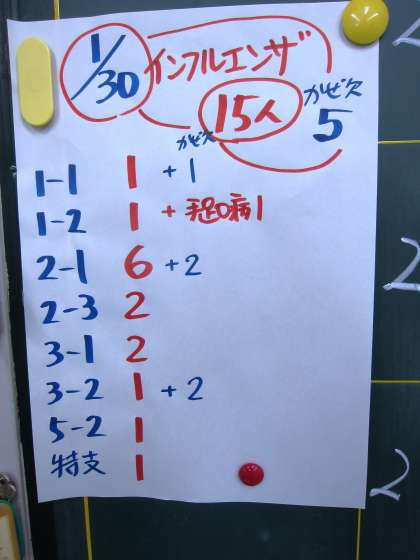 1/30 インフルエンザ
15人 かぜ欠 5
かぜ欠
1-1 1 +1
1-2 1 + 手足口病1
2-1 6 +2
2-3 2
3-1 2
3-2 1 +2
5-2 1
特支 1
2
2
2